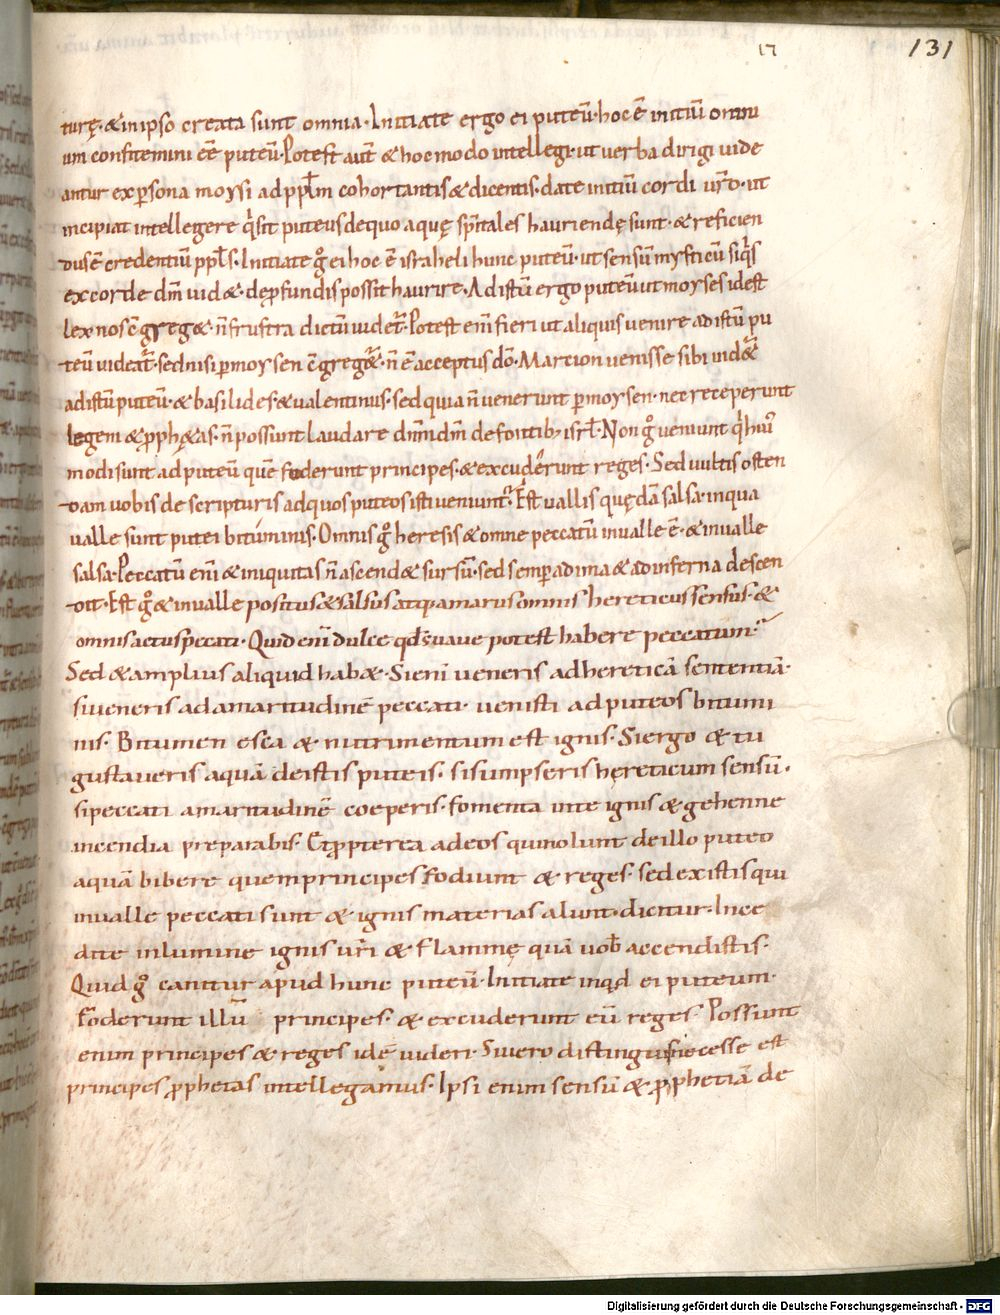 17
131
turę · & in ipso creata sunt omnia · Initiate ergo ei puteū · hoc ē initiū omni
um confitemini eē puteū · Potest aut̄ & hoc modo intellegi · ut verba dirigi uide
antur ex p̱sona moysi ad pp̄lm cohortantis & dicentis · date initiū cordi ur̄o · ut
incipiat intellegere q̇ sit puteus de quo aquę sp̄itales hauriendę sunt · & reficien
dus ē credentiū pp̄ls · Initiate g̊ ei hoc ē israheli hunc puteū · ut sensū mysticū siq̇s
ex corde dm̄ uid& · de p̱fundis possit haurire · Ad istū ergo puteū ut moyses id est
lex nos c̄greg& · n̄ frustra dictū uidet̄ · Potest em̄ fieri ut aliquis uenire ad istū pu
teū uideat̄ · sed nisi p̱ moysen c̄greg&̄ · n̄ ē acceptus dō · Marcion uenisse sibi uid&̄
ad istū puteū · & basilides & ualentinus · sed quia n̄ uenerunt p̱ moysen · nec receperunt
legem & p̱ph&as · n̄ possunt laudare dnm̄ dm̄ de fontib; isr̄l · Non g̊ ueniunt q̇ hui᾿
modi sunt ad puteū quē foderunt principes · & excuderunt reges · Sed uultis osten
dam uobis de scripturis ad quos puteos isti ueniunt · Est uallis quędā salsa · in qua
ualle sunt putei bituminis · Omnis g̊ heresis & omne peccatū in ualle ē · & in ualle
salsa · Peccatū eni & iniquitas n̄ ascend& sursū · sed semp̱ ad ima & ad inferna descen
dit · Est g̊ & in ualle positus & salsus atq; amarus omnis hereticus sensus · &
omnis actus peccati · Quid eni dulce qd̄ suaue potest habere peccatum ·
Sed & amplius aliquid hab& · Si eni ueneris ad hereticā sententiā ·
si ueneris ad amaritudinē peccati · uenisti ad puteos bitumi
nis · Bitumen esca & nutrimentum est ignis · Si ergo & tu
gustaueris aquā de istis puteis · si sumpseris hęreticum sensū ·
si peccati amaritudinē coeperis · fomenta in te ignis & gehenne
incendia preparabis · Et p̱pterea ad eos qui nolunt de illo puteo
aquā bibere quem principes fodiunt & reges · sed ex istis qui
in ualle peccati sunt & ignis materias alunt · dicitur · Ince
dite in lumine ignis ur̄i & flammę quā uob̄ accendistis ·
Quid g̊ canitur apud hunc puteū · Initiate inq̇d ei puteum ·
foderunt illū principes · & excuderunt eū reges · Possunt
enim principes & reges idē uideri · Si uero distingui necesse est
principes p̱phetas intellegamus · Ipsi enim sensū & p̱phetiā de
Digitalisierung gefördert durch die Deutsche Forschungsgemeinschaft - DFG